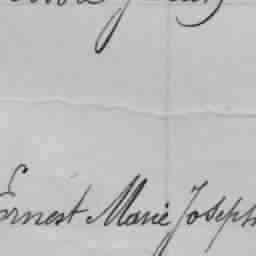 Ernest Marie Joseph